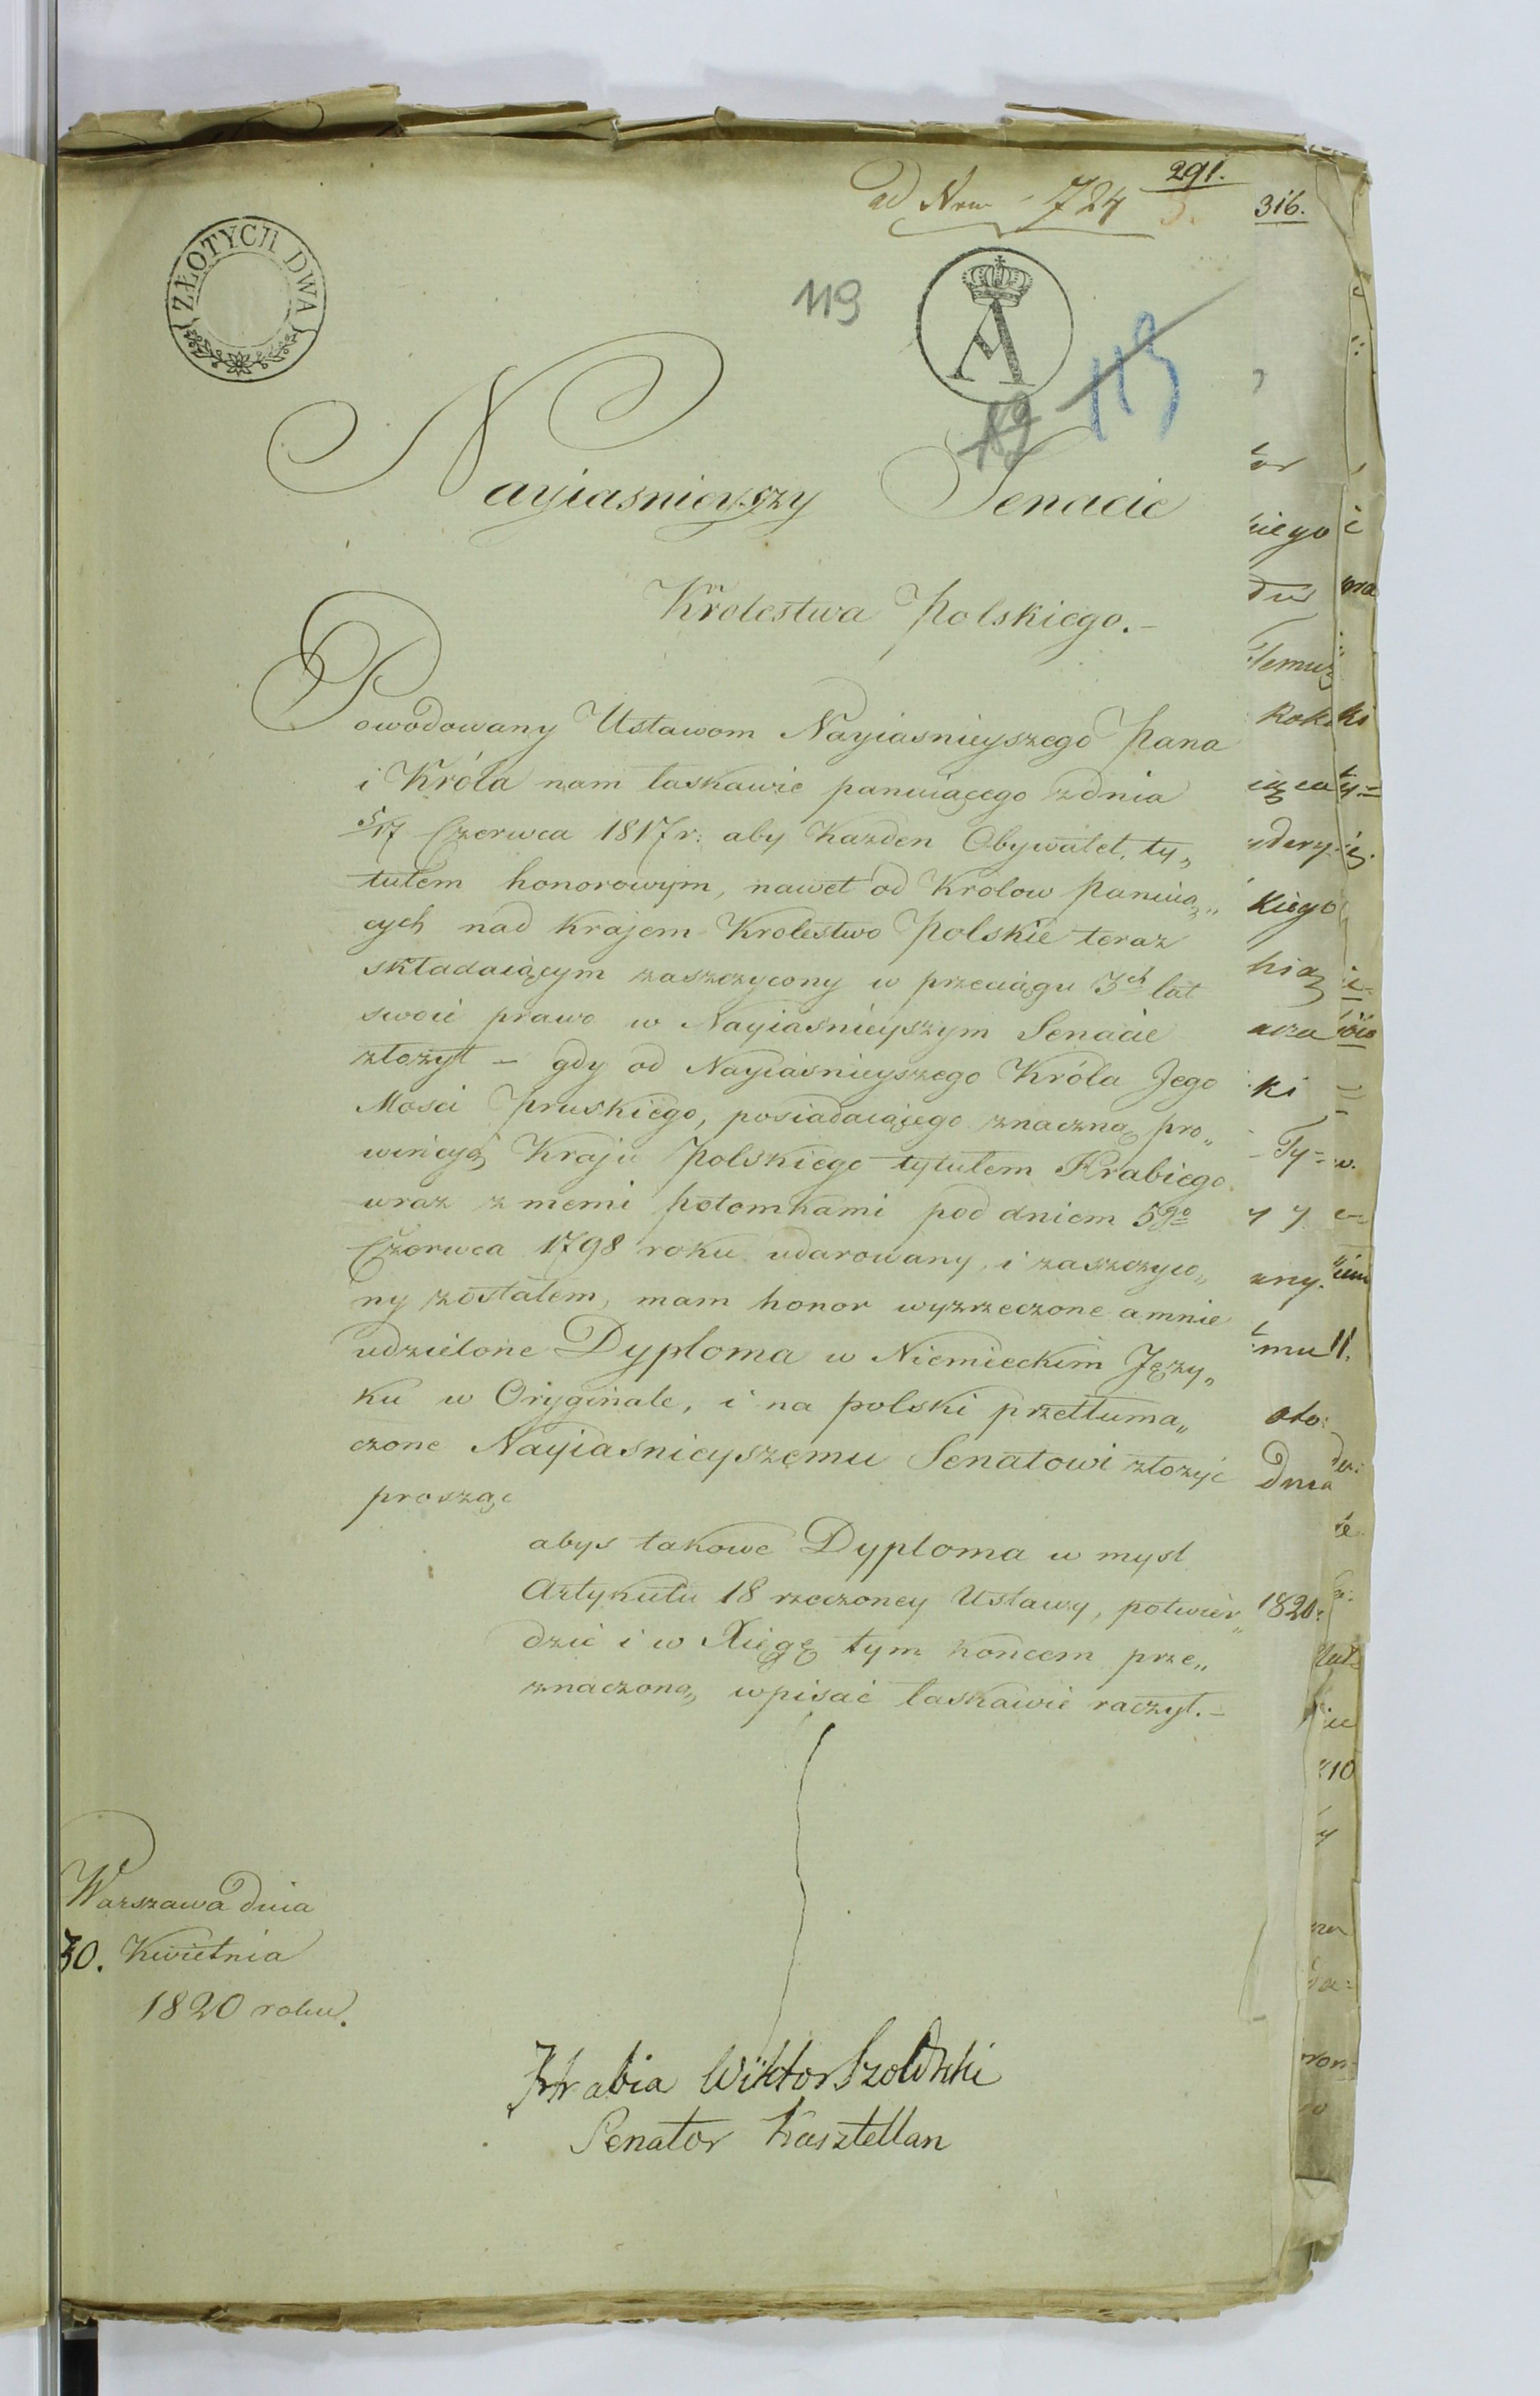 291.
ad Nrm 724
316.
ZŁOTYCH DWA
119
A
113
Nayiasnieyszy Senacie
Krolestwa Polskiego.-
Powodowany Ustawom Nayiasnieyszego Pana
i Króla nam łaskawie panuiącego z dnia
5/17 Czerwca 1817 r: aby Kazden Obywatel, ty„
tulem honorowym, nawet od Krolow Panuią„
cych nad Krajem Krolestwo Polskie teraz
składaiącym zaszczycony w przeciągu 3ch lat
swoie prawo w Nayiasnieyszym Senacie
złożył – gdy od Nayiasnieyszego Króla Jego
Mosci Pruskiego, posiadaiącego znaczną pro„
wincyą Kraju Polskiego tytulem Hrabiego
wraz z memi potomkami pod dniem 5go
Czerwca 1798 roku udarowany, i zaszczyco„
ny zostałem, mam honor wyzrzeczone a mnie
udzielone Dyploma w Niemieckim Języ„
ku w Oryginale, i na polski przetłuma„
czone Nayiasnieyszemu Senatowi złożyć
prosząc
abys takowe Dyploma w mysl
Artykułu 18 rzeczoney Ustawy, potwier„
dzić i w Xięgę tym koncem prze„
znaczoną wpisać łaskawie raczył.-
Warszawa dnia
30. Kwietnia
1820 roku.
Hrabia Wiktor Szołdrski
Senator Kasztellan
kiego
Dnia
1820: